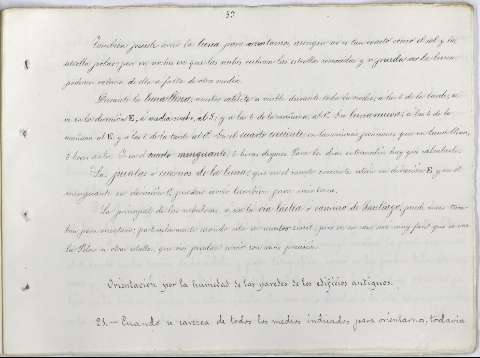 37
También puede servir la luna para orientarnos, aunque no es tan exacto como el sol y la
estrella polar, por en noche en que las nubes cubran las estrellas invocadas y se pueda ver la luna,
podemos valernos de ella a falta de otro medio.
Durante la luna llena, nuestro satélite es visible durante toda la noche; a las 6 de la tarde, se
ve en la dirección E, a media noche, al S, y a las 6 de la mañana, al O. En luna nueva, a las 6 de la
mañana al E, y a las 6 de la tarde al O. En el cuarto creciente en las mismas posiciones que en luna llena,
6 horas antes. En el cuarto menguante, 6 horas después. Para los días intermedios hay que calcularlo.
Las puntas o cuernos de la luna, que en el cuarto creciente están en dirección E y en el
menguante en dirección O, pueden servir también para orientarse.
La principal de las nebulosas, o sea la vía láctea o camino de Santiago, puede servir tam-
bién para orientarse; particularmente cuando ésta en nuestro zenit, pero en ese caso sea muy fácil que se vea
la Polar u otra estrella, que nos puedan servir con más precisión.
Orientación por la humedad de las paredes de los edificios antiguos.
23.— Cuando se carezca de todos los medios indicados para orientarnos, todavía